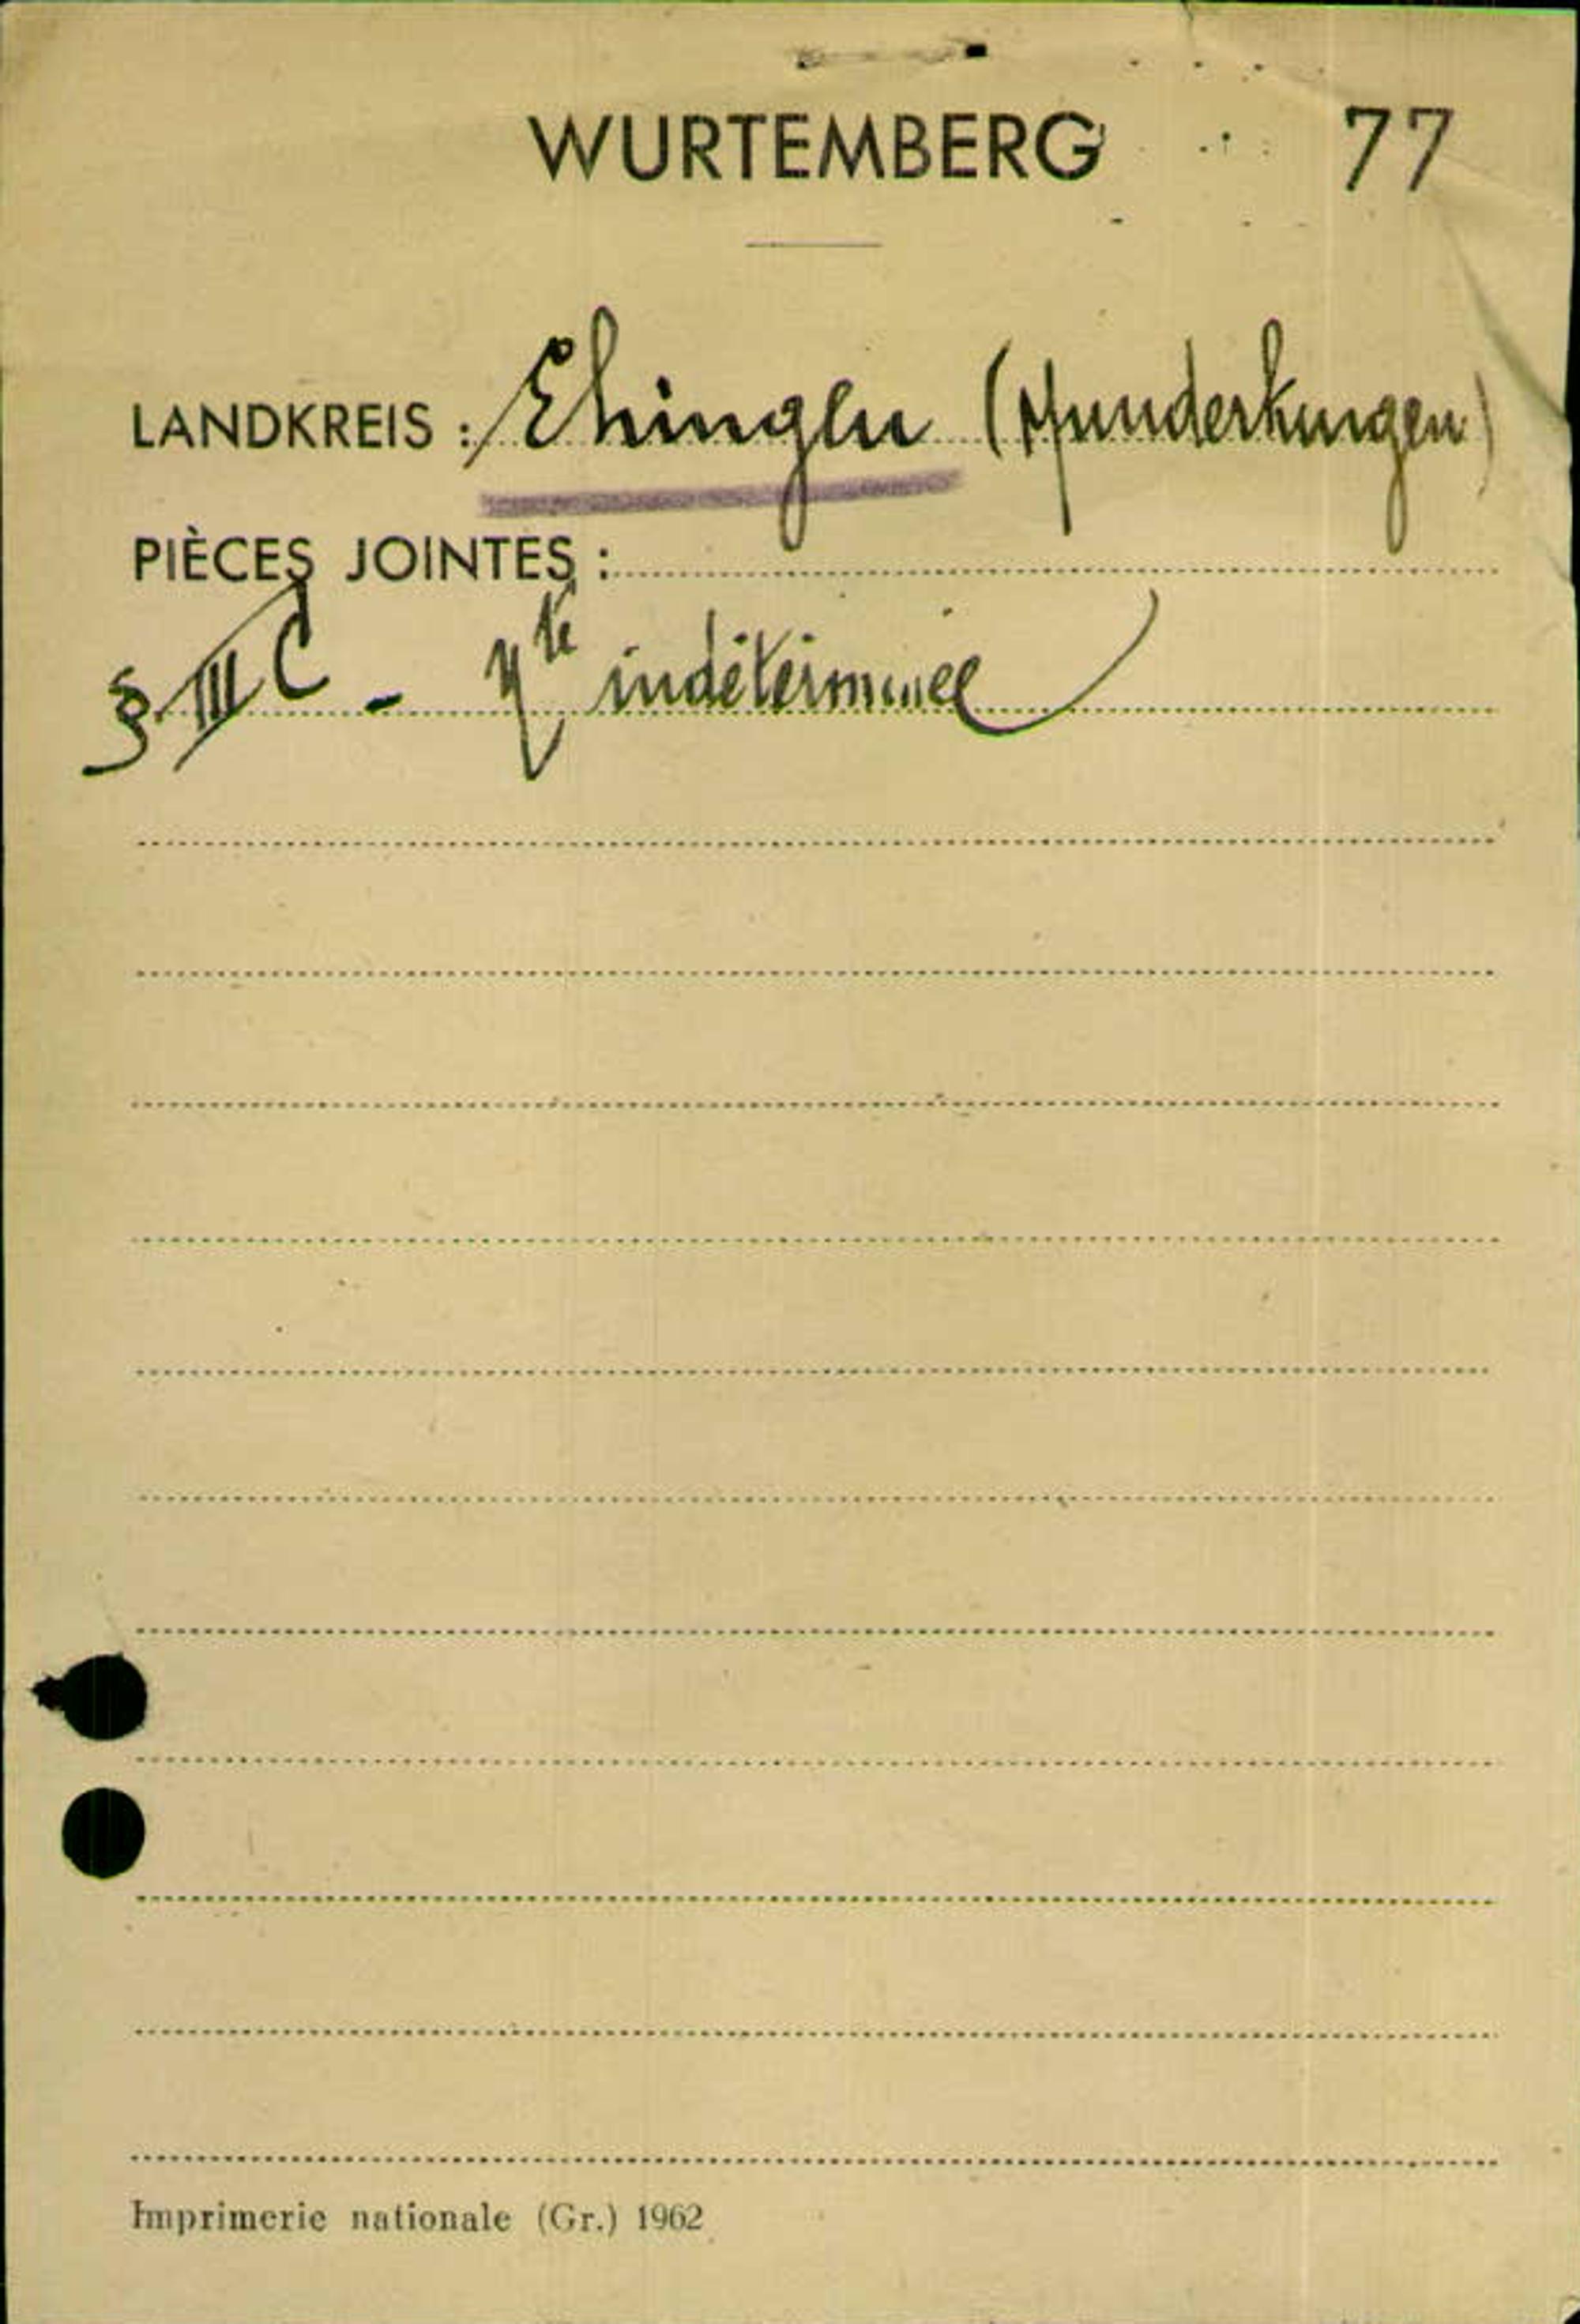 WURTEMBERG 77
LANDKREIS : Ehingen (Munderkingen)
PIÈCES JOINTES :
§ III C - Nté indéterminée
Imprimerie nationale (Gr.) 1962